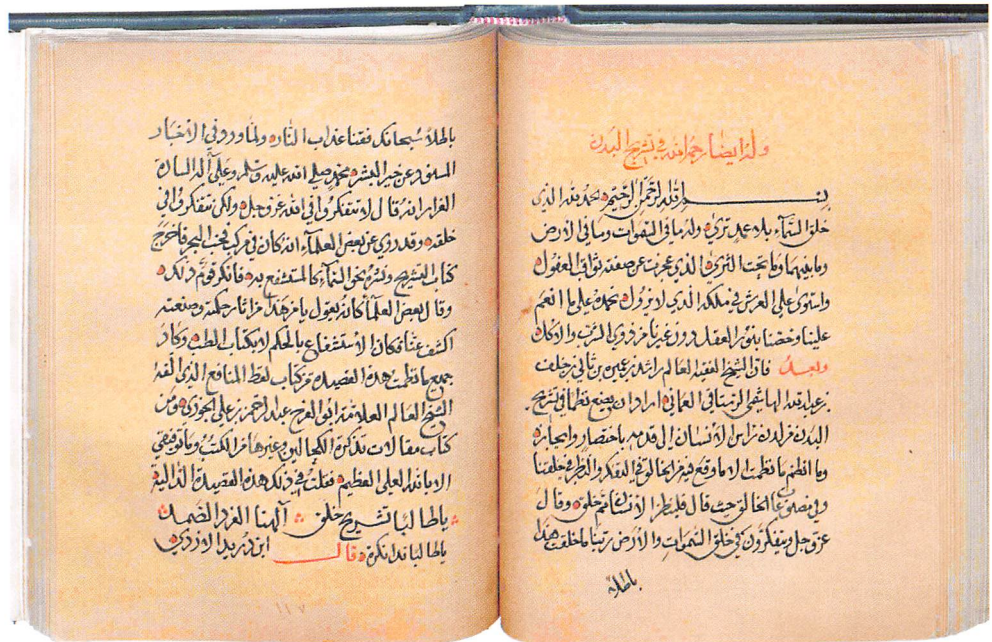 وله ايضا رحمه الله في تشريح البدن
بسم الله الرحمن الرحيم الحمد لله الذي
خلق السمآء بلا عمد ترى وله ما في السموات وما في الأرض
وما بينهما وما تحت الثرى الذي عجزت عن صفته ثواقب العقول
واستوى على العرش في ملكه الذي لا يزول نحمده على ما انعم
علينا وخصنا بنور العقل دون غيرنا من ذوي الشرب والاكل
وبعد فان الشيخ الفقيه العالم راشد بن عميره بن ثاني بن خلف
بن عبد الله الهاشمي الرستاقي العماني اراد ان يصنع نظما في تشريح
البدن من لدن راس الأنسان الى قدمه باختصار وايجاز
وما انظم ما نظمت الا ما وقع فيه امر الخالق في التفكر والنظر في خلقتنا
وفي مصنوع الخالق حيث قال فلينظر الأنسان مم خلق وقال
عز وجل ويتفكرون في خلق السموات والأرض ربنا ما خلقت هذا
باطلا
باطلا سبحانك فقنا عذاب النار ولما ورد في الأخبار
عن خير البشر محمد صلى الله عليه وسلم وعلى آله السادة
الغرر انه قال لا تتفكروا في الله عز وجل ولكن تفكروا في
خلقه وقد روي عن بعض العلمآء انه كان في مركب في البحر فاخرج
كتاب التشريح ونشره نحو السمآء كالمستشفع به فانكر قوم ذلك
وقال بعض العلما كانه يقول يا من هذا من اثار حكمته وصنعته
اكشف عنا فكان الأستشفاع بالحكم لا بكتاب الطب وكان
جميع ما نظمت هذه القصيده من كتاب لقط المنافع الذي الفه
الشيخ العالم العلامة ابو الفرج عبد الرحمن بن علي الجوزي ومن
كتاب مقالات تذكرة الكحالين وغيرها من الكتب وما توفيقي
الا بالله العلي العظيم فقلت في ذلك هذه القصيدة الدالية
ياطالبا تشريح خلق آلهنا الفرد الصمد
ياطالبا قال ابن دريد الازدي
١١٧